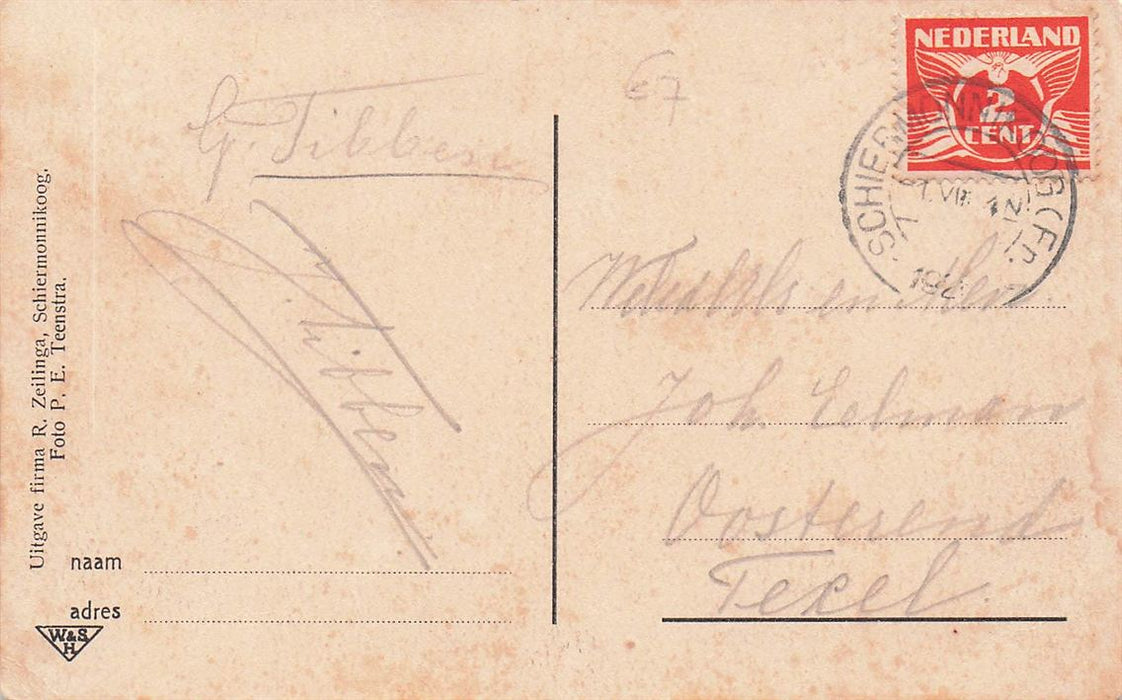 Uitgave firma R. Zeilinga, Schiermonnikoog.
Foto P. E. Teenstra.
G. Tibben
Tibben
€7
naam
adres
W&S
H
NEDERLAND
2
CENT
SCHIERMONNIKOOG (Fr.)
en
Joh. Eelman
Oosterend
Texel.